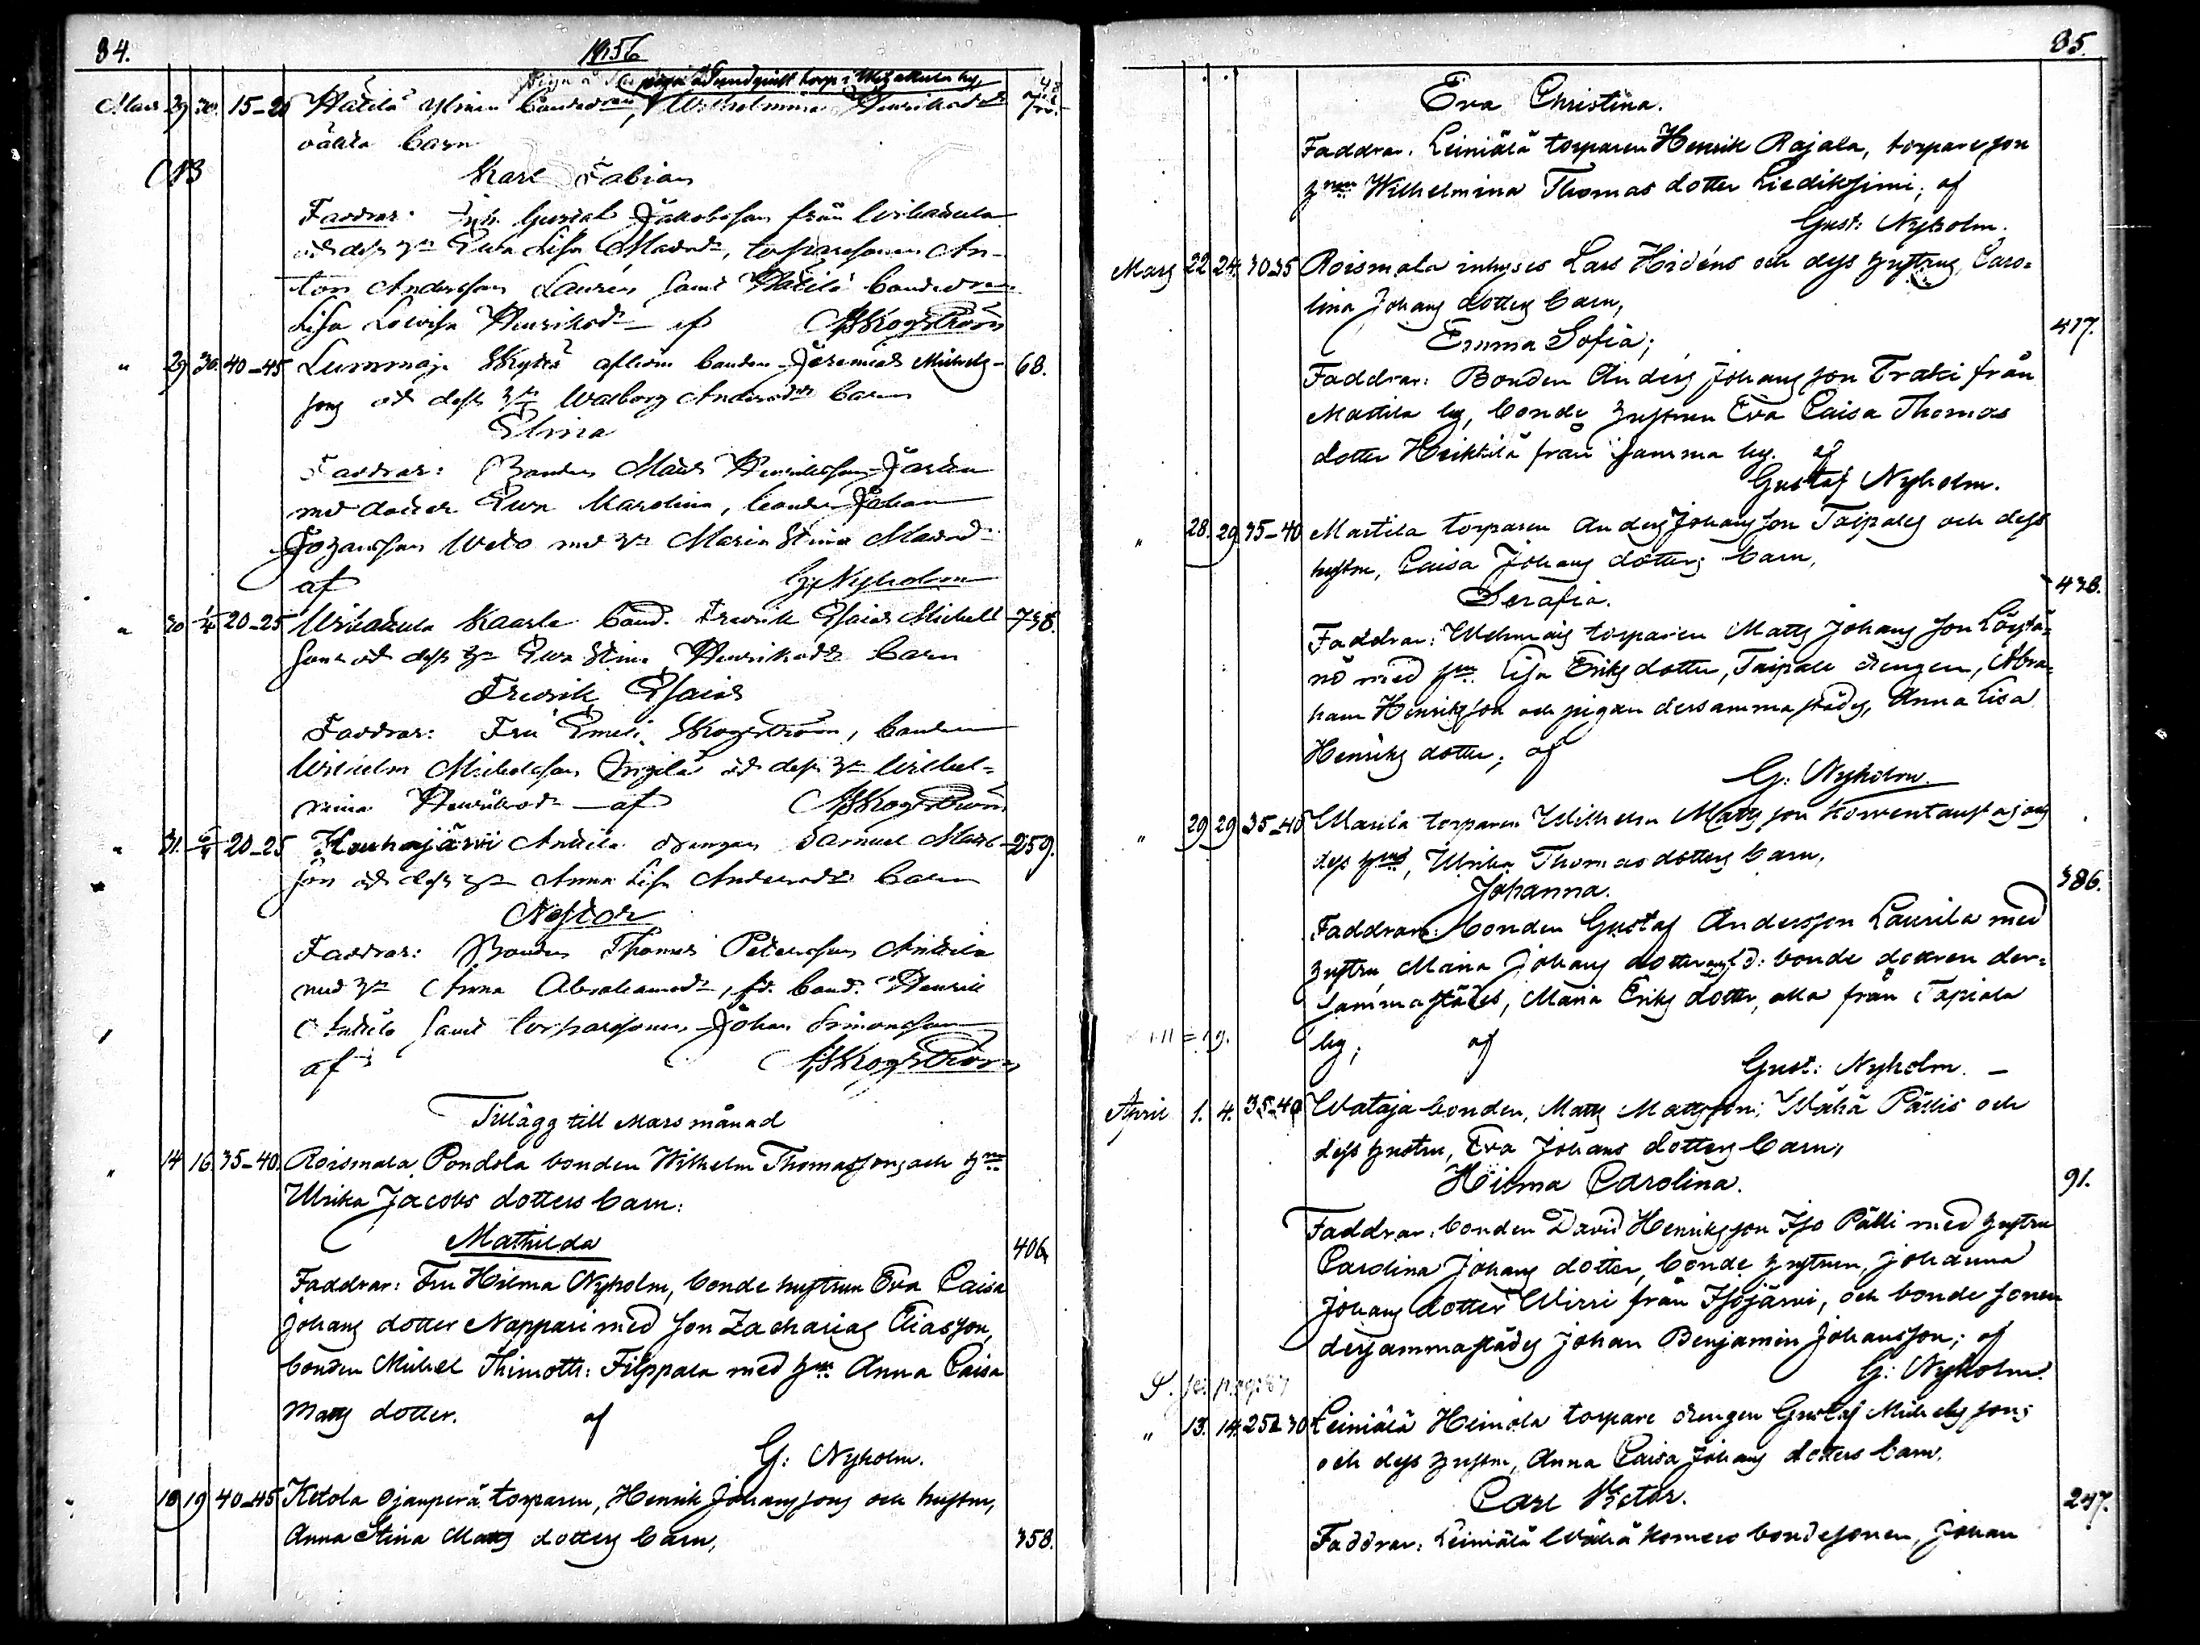 84.
1856
piga å Sundqvist torp i Wihattula by,
Mars 29 30. 15-20 Hätilä Ylinen bondedren, Wilhelmina Henriksdr
oäkta barn
Karl Fabian
Faddrar: Inh. Gustaf Jakobsson från Wihattula
och dess hu Eva Lisa Matsdr, torparesonen An-
ton Andersson Laurén samt Hätilä bondedren
Lisa Lovisa Henriksdr af Skogström
" 29 30. 40-45 Lummaja Skyttä aflidne bonden Jeremias Michels- 68.
sons och dess hu Walborg Andersdrs barn
Elina
Faddrar: Bonden Matts Henriksson
med dotter Eva Karolina, bonden Johan
Johansson med hu Maria Stina Mattsd
af G. Nyholm
" 30 1/4 20-25 Wihattula Kaarla bond. Fredrik Esaias Michels 738.
sons och dess hu Eva Stina Henriksdrs barn
Fredrik Esaias
Faddrar: Fru Emeli Skogström, bonden
Wilhelm Michelsson och dess hu Wilhel-
mina Henriksdr af Skogström
" 31. 6/4 20-25 Kouhajärvi Anttila drengen Samuel Mats- 259.
son och dess hu Anna Lisa Andersdrs barn
Nestor
Faddrar: Bonden Thomas Petersson Anttila
med hu Anna Abrahamsdr, fd. bond. Henrik
Anttila samt torparesonen Johan Simonsson
af Skogström
Tillägg till Mars månad
" 14 16 35-40. Roismala Pondola bonden Wilhelm Thomassons och hus
Ulrika Jacobs dotters barn:
Mathilda 406
Faddrar: Fru Hilma Nyholm, bonde hustrun Eva Caisa
Johans dotter Nappari med son Zacharias Eliasson,
bonden Michel Thimoth: Filppala med hu Anna Caisa
Matts dotter. af
G: Nyholm.
" 18 19 40-45 Ketola Ojanperä torparen, Henrik Johanssons och hustrus,
Anna Stina Matts dotters barn, 358.
85.
Eva Christina.
Faddrar. Leiniälä torparen Henrik Rajala, torpareson
hun Wilhelmina Thomas dotter Liediksimi; af
Gust: Nyholm.
Mars 22 24. 30-35 Roismala inhyses Lars Hidéns och dess hustrus, Caro-
lina Johans dotters barn,
Emma Sofia; 417.
Faddrar: Bonden Anders Johansson Traki från
Marttila by, bonde hustrun Eva Caisa Thomas
dotter Heikkilä från samma by. af
Gustaf Nyholm.
" 28. 29. 35-40 Marttila torparen Anders Johansson Taipales och dess
hustrus, Caisa Johans dotters barn,
Serafia. 438.
Faddrar: torparen Matts Johansson Löytä-
nö med hun Lisa Eriks dotter, Taipale drengen, Abra-
ham Henriksson och pigan dersammastädes, Anna Lisa
Henriks dotter; af
G: Nyholm.
" 29 29 35-40 Marttila torparen Wilhelm Mattsson Korventaustas och
dess hus, Ulrika Thomas dotters barn,
Johanna. 386.
Faddrar: bonden Gustaf Andersson Laurila med
hustru Maria Johans dotter och bonde dottren der-
sammastädes, Maria Eriks dotter, alla från Tapiala
by; af
Gust: Nyholm. -
April 1. 4. 35-40 Wataja bonden, Matts Mattsson, Wähä Pälli och
dess hustru, Eva Johans dotters barn,
Hilma Carolina. 91.
Faddrar: bonden David Henriksson Iso Pälli med hustru
Carolina Johans dotter, bonde hustrun, Johanna
Johans dotter Wirri från Isojärvi, och bonde sonen
dersammastädes Johan Benjamin Johansson; af
G: Nyholm.
S. se. pag: 87
" 13. 14. 25-30 Leiniälä Heinola torpare drengen Gustaf Michelssons
och dess hustru, Anna Caisa Johans dotters barn.
Carl Victor. 247.
Faddrar: Leiniälä Wähä Komero bondesonen, Johan